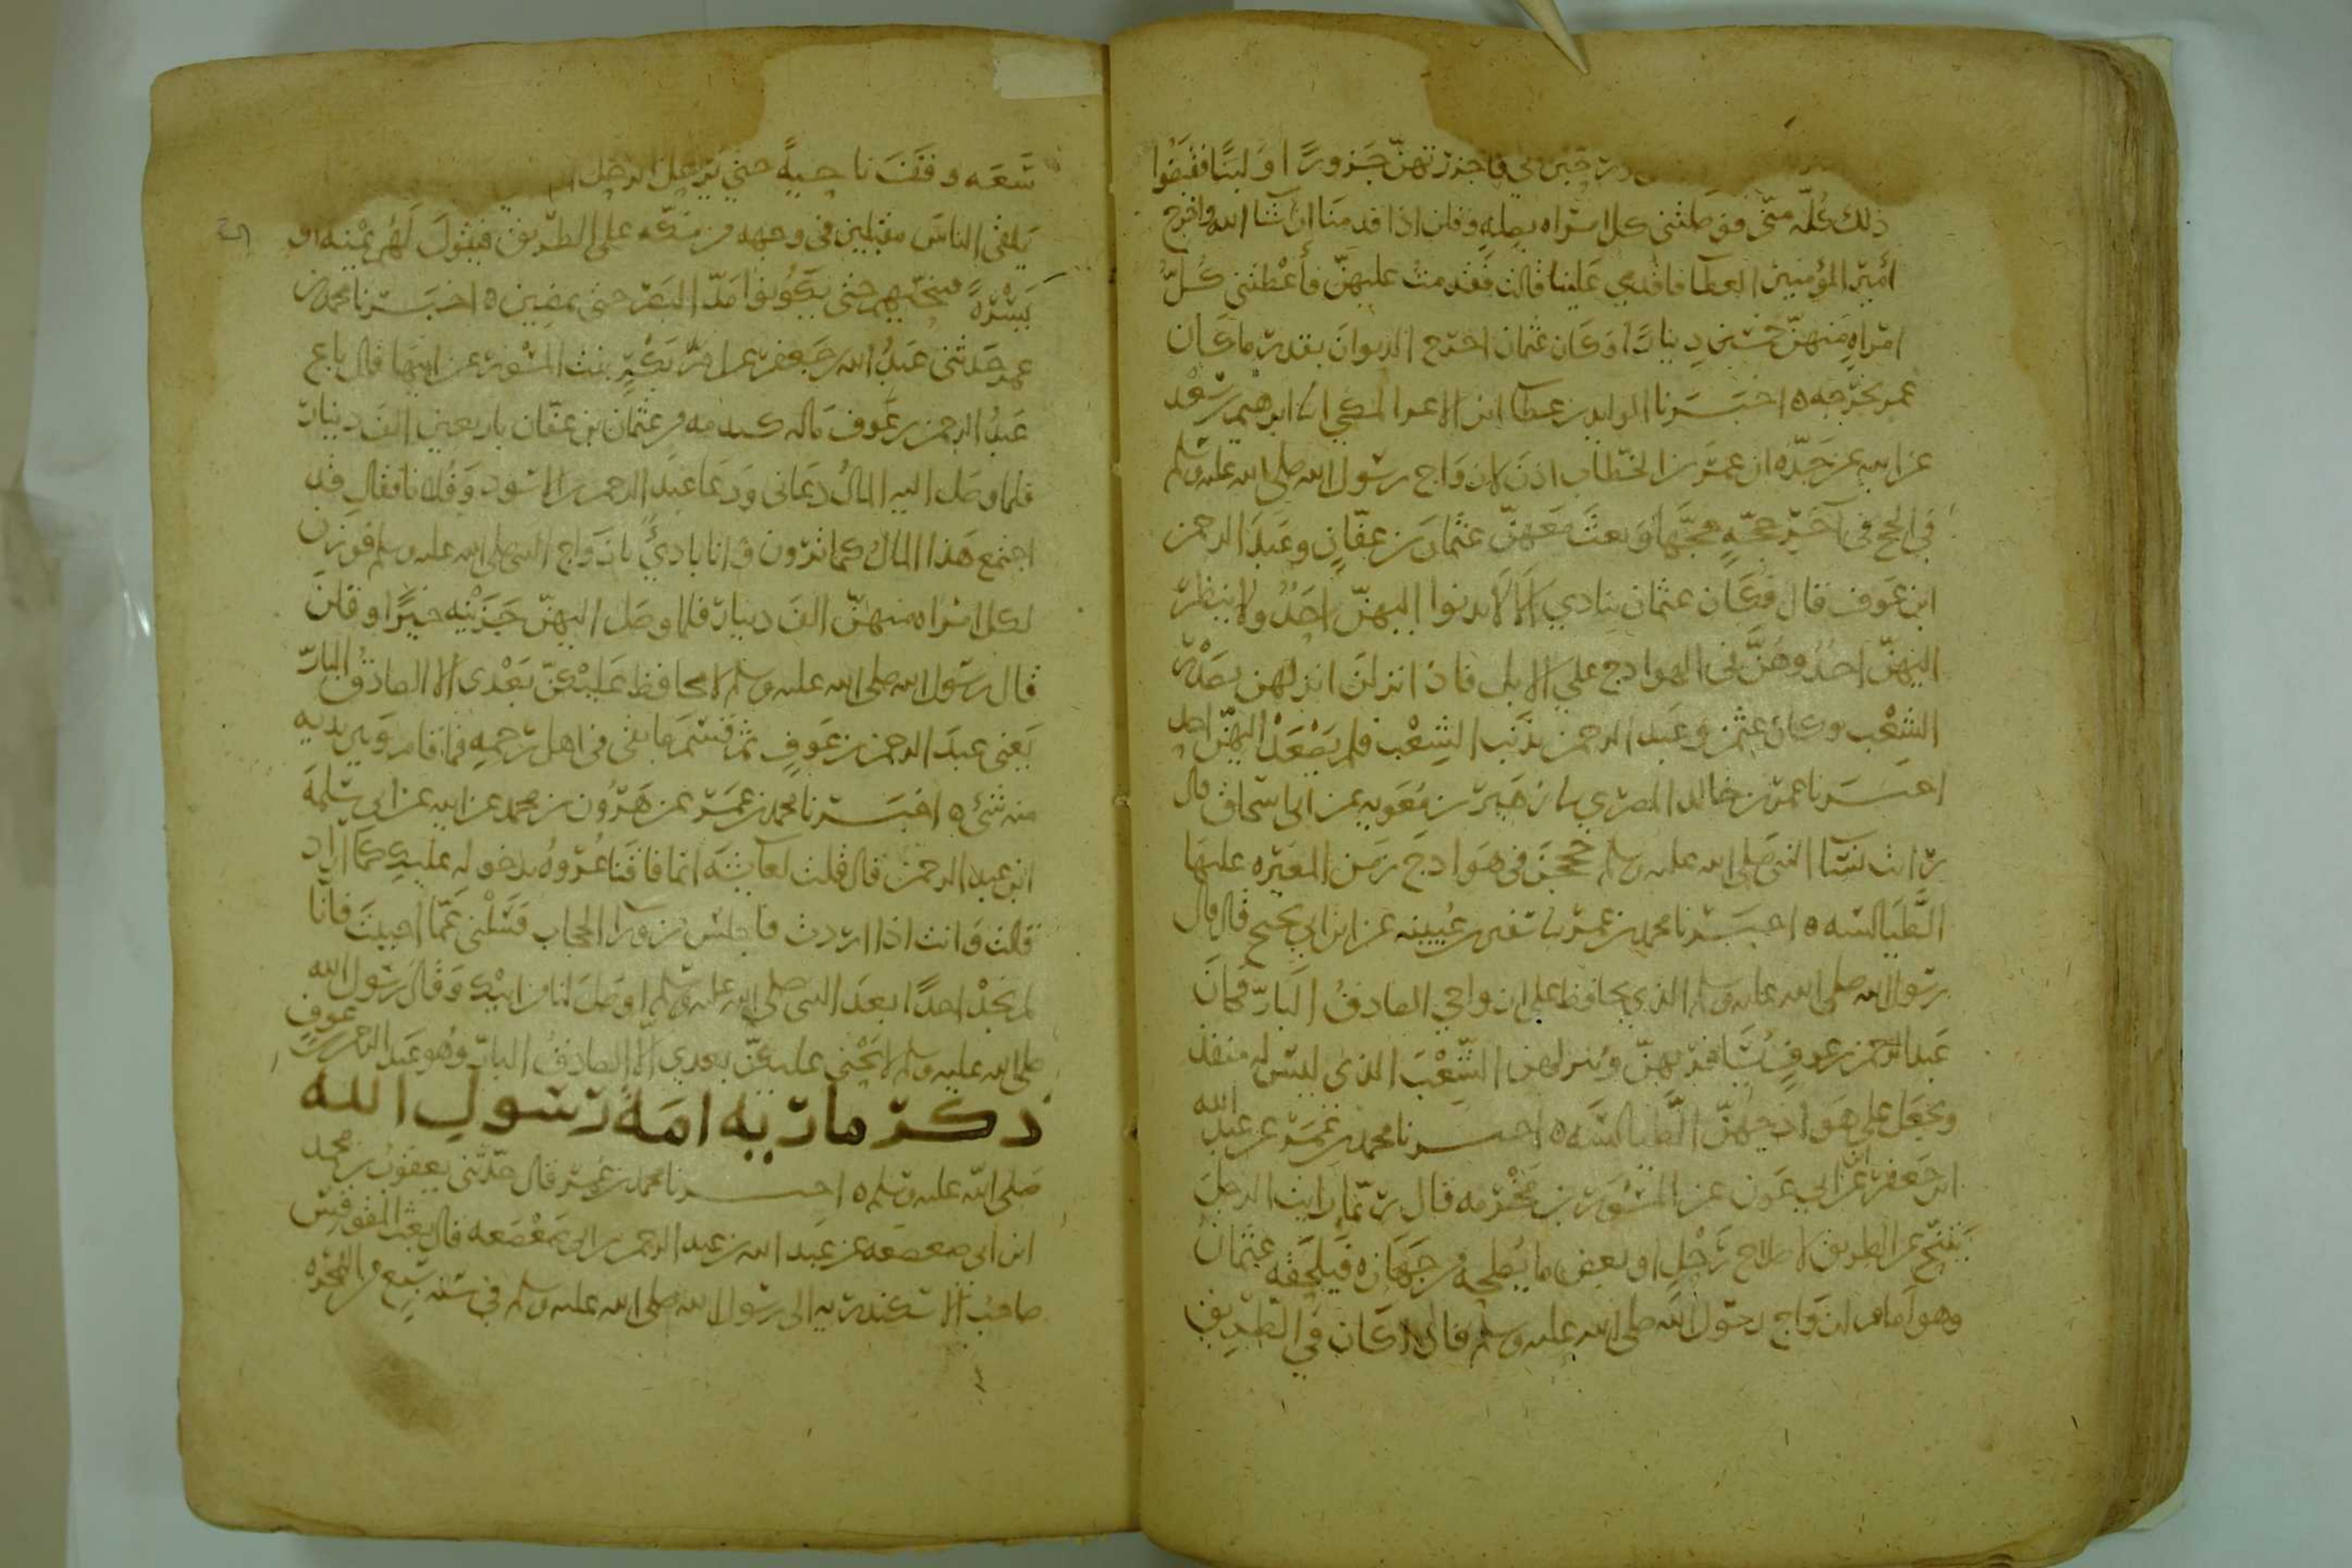 فاجزرتهن جزورا او لبنا فقبضوا
ذلك كله مني فوصلتني كل امراه بصله وقلن اذا قدمنا ان شا الله واخرج
أمير المؤمنين العطا فاقدمي علينا قالت فقدمت عليهن فأعطتني كل
امراه منهن خمسين دينارا وكان عثمان اخرج الديوان بقدر ما كان
عمر يخرجه ٥ اخبرنا الوليد بن عطا ابن الاغر المكي ابرهيم بن سعد
عن ابيه عن جده ان عمر بن الخطاب اذن لازواج رسول الله صلى الله عليه وسلم
في الحج في آخر حجه حجها وبعث معهن عثمان بن عفان وعبد الرحمن
ابن عوف قال فكان عثمان ينادي الا لا يدنوا اليهن احد ولا ينظر
اليهن احد وهن في الهوادج على الابل فاذا نزلن انزلهن بصدر
الشعب وكان عثمن وعبد الرحمن بذنب الشعب فلم يصعد اليهن احد
اخبرنا عمر بن خالد المصري زهير بن معويه عن ابي اسحاق قال
رايت نسا النبي صلى الله عليه وسلم حججن في هوادج زمن المغيره عليها
الطيالسه ٥ اخبرنا محمد بن عمر سفين بن عيينه عن ابن ابي نجيح قال قال
رسول الله صلى الله عليه وسلم الذي يحافظ على ازواجي الصادق البار فكان
عبد الرحمن بن عوف يسافر بهن وينزلهن الشعب الذي ليس له منفذ
ويجعل على هوادجهن الطيالسه ٥ اخبرنا محمد بن عمر عن عبد الله
ابن جعفر عن ابن ابي عون عن المسور بن مخرمه قال ربما رايت الرجل
يتنح عن الطريق لاصلاح رحل او بعض ما يصلح من جهازه فيلحقه عثمان
وهو امام ازواج رسول الله صلى الله عليه وسلم فان كان في الطريق
سعه وقف ناحية حتى يرحل الرجل
يلقى الناس مقبلين في وجهه من مكه على الطريق فيقول لهم يمنه او
يسره فينحيهم حتى يكونوا مد البصر حتى يمضين ٥ اخبرنا محمد بن
عمر حدثني عبد الله بن جعفر عن ام بكر بنت المسور عن ابيها قال باع
عبد الرحمن بن عوف ماله كيدمه من عثمان بن عفان باربعين الف دينار
فلما وصل اليه المال دعاني ودعا عبد الرحمن بن الاسود وفلانا فقال قد
اجتمع هذا المال كما ترون وانا بادئ بازواج النبي صلى الله عليه وسلم فوزن
لكل امراه منهن الف دينار فلما وصل اليهن جزينه خيرا وقلن
قال رسول الله صلى الله عليه وسلم لا يحافظ عليكن بعدي الا الصادق البار
يعني عبد الرحمن بن عوف ثم قسم ما بقي في اهل رحمه فما قام وبين يديه
منه شئ ٥ اخبرنا محمد بن عمر عن هرون بن محمد عن ابيه عن ابي سلمه
ابن عبد الرحمن قال قلت لعايشه انما فاقنا عروه بدخوله عليك كما اراد
قالت وانت اذا اردت فاجلس من ورا الحجاب فسلني عما احببت فانا
لم نجد احدا بعد النبي صلى الله عليه وسلم اوصل لنا من ابيك وقال رسول الله
صلى الله عليه وسلم لا يحنى عليكن بعدي الا الصادق البار وهو عبد الرحمن بن عوف
ذكر ماريه امة رسول الله
صلى الله عليه وسلم ٥ اخبرنا محمد بن عمر قال حدثني يعقوب بن محمد
ابن ابي صعصعه عن عبد الله بن عبد الرحمن بن ابي صعصعه قال بعث المقوقس
صاحب الاسكندريه الى رسول الله صلى الله عليه وسلم في سنه سبع من الهجره